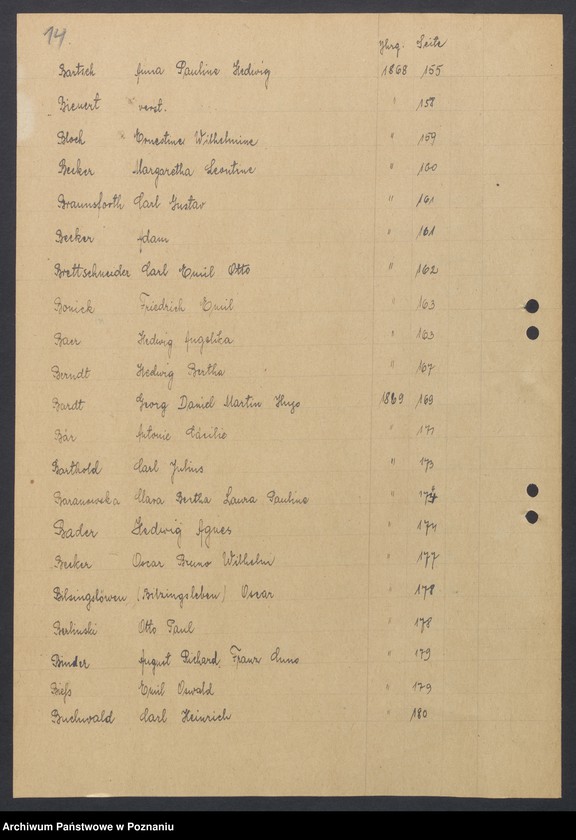 14.
Jhrg. Seite
Bartsch Anna Pauline Hedwig 1868 155
Bienert verst. " 158
Bloch Ernestine Wilhelmine " 159
Becker Margaretha Leontine " 160
Braunsforth Carl Gustav " 161
Becker Adam " 161
Brettschneider Carl Emil Otto " 162
Bonick Friedrich Emil " 163
Baer Hedwig Angelika " 163
Berndt Hedwig Bertha " 167
Bardt Georg Daniel Martin Hugo 1869 169
Bär Antonie Cäcilie " 171
Barthold Carl Julius " 173
Baranowska Clara Bertha Laura Pauline " 174
Bader Hedwig Agnes " 174
Becker Oscar Bruno Wilhelm " 177
Bilsingslöwen (Bilringsleben) Oscar " 178
Berlinski Otto Paul " 178
Binder August Richard Franz Cuno " 179
Bieß Emil Oswald " 179
Buchwald Carl Heinrich " 180
Archiwum Państwowe w Poznaniu